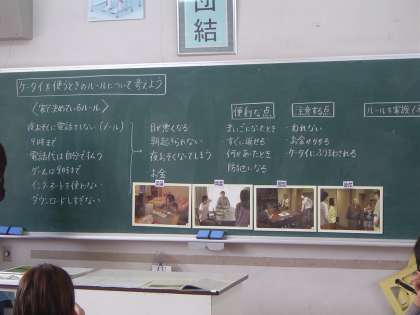 団結
ケータイを使うときのルールについて考えよう
〈家で決めているルール〉
夜おそくに電話をしない(メール)
9時まで
電話代は自分で払う
ゲームは9時まで
インターネットを使わない
ダウンロードしすぎない
目が悪くなる
朝起きられない
夜おそくなってしまう
お金
便利な点
まいごになったとき
すぐに返せる
何かあったとき
防犯になる
注意する点
お金がかかる
ケータイにふりまわされる
ルールを家族